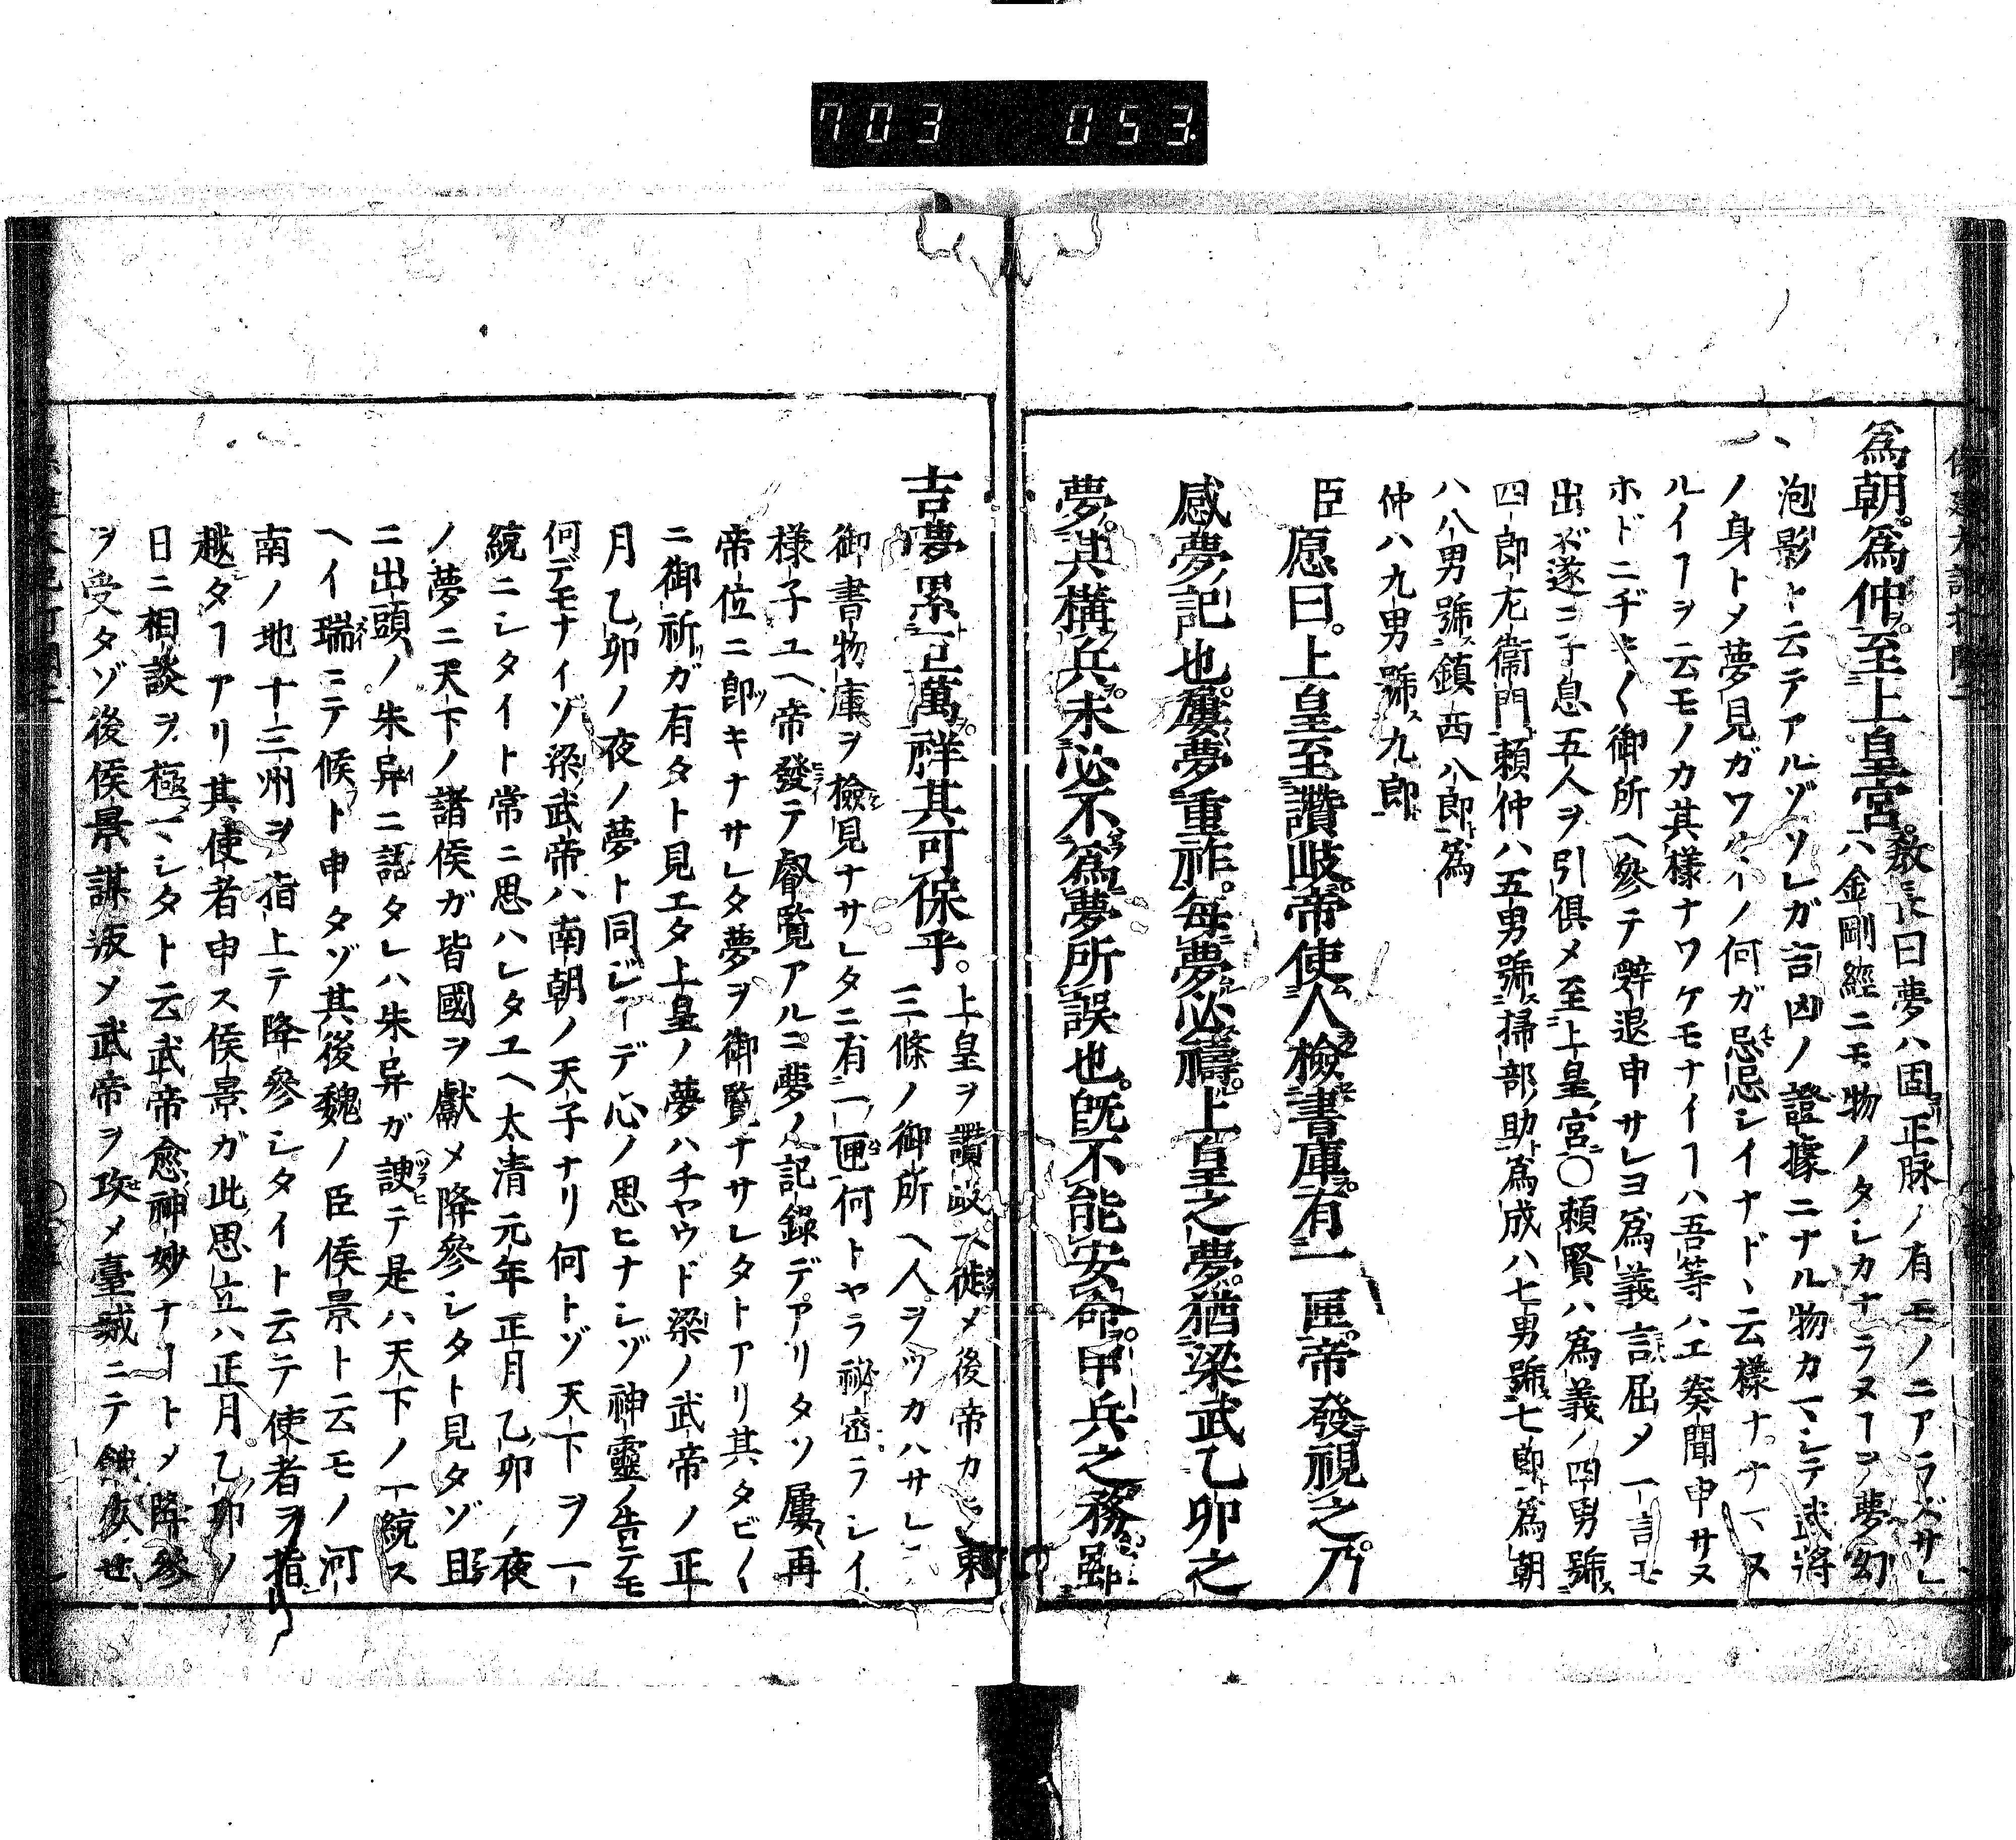 703 053
爲朝爲仲至上皇宮教長曰夢ハ固正脉ノ有モノニアラズサレ
ハ金剛經ニモ物ノタシカナラヌヿヲ夢幻
泡影ト云テアルゾソレガ言凶ノ證據ニナル物カマシテ武將
ノ身トメ夢見ガワルイノ何ガ忌忌シイナドヽ云様ナナマヌ
ルイヿヲ云モノカ其様ナワケモナイヿハ吾等ハエ奏聞申サヌ
ホドニヂキ〱御所ヘ參テ辭退申サレヨ爲義言屈メ一言モ
出ズ遂ニ子息五人ヲ引俱メ至上皇宮〇頼賢ハ爲義ノ四男號
四郎左衞門頼仲ハ五男號掃部助爲成ハ七男號七郎爲朝
ハ八男號鎮西八郎爲
仲ハ九男號九郎
臣愿曰上皇至讚岐帝使人檢書庫有一匣帝發視之乃
感夢記也屢夢重祚每夢必禱上皇之夢猶梁武乙卯之
夢其構兵未必不爲夢所誤也旣不能安命甲兵之務雖
吉夢累百萬祥其可保乎上皇ヲ讚岐ヘ徙メ後帝カラ東
三條ノ御所ヘ人ヲツカハサレ
御書物庫ヲ檢見ナサレタニ有一匣何トヤラ祕密ラシイ
様子ユヘ帝發テ叡覽アルニ夢ノ記錄デアリタソ屢再
帝位ニ卽キナサレタ夢ヲ御覽ナサレタトアリ其タビ〱
ニ御祈ガ有タト見エタ上皇ノ夢ハチヤウド梁ノ武帝ノ正
月乙卯ノ夜ノ夢ト同ジヿデ心ノ思ヒナシゾ神靈ノ告テモ
何デモナイゾ梁武帝ハ南朝ノ天子ナリ何トゾ天下ヲ一
統ニシタイト常ニ思ハレタユヘ太清元年正月乙卯ノ夜
ノ夢ニ天下ノ諸侯ガ皆國ヲ獻メ降參シタト見タゾ且
ニ出頭ノ朱异ニ語タレハ朱异ガ諛テ是ハ天下ノ一統ス
ヘイ瑞ニテ候ト申タゾ其後魏ノ臣侯景ト云モノ河
南ノ地十三州ヲ指上テ降參シタイト云テ使者ヲ指
越タヿアリ其使者申ス侯景ガ此思立ハ正月乙卯ノ
日ニ相談ヲ極マシタト云武帝愈神妙ナヿトメ降參
ヲ受タゾ後侯景謀叛メ武帝ヲ攻メ臺城ニテ餓死せ